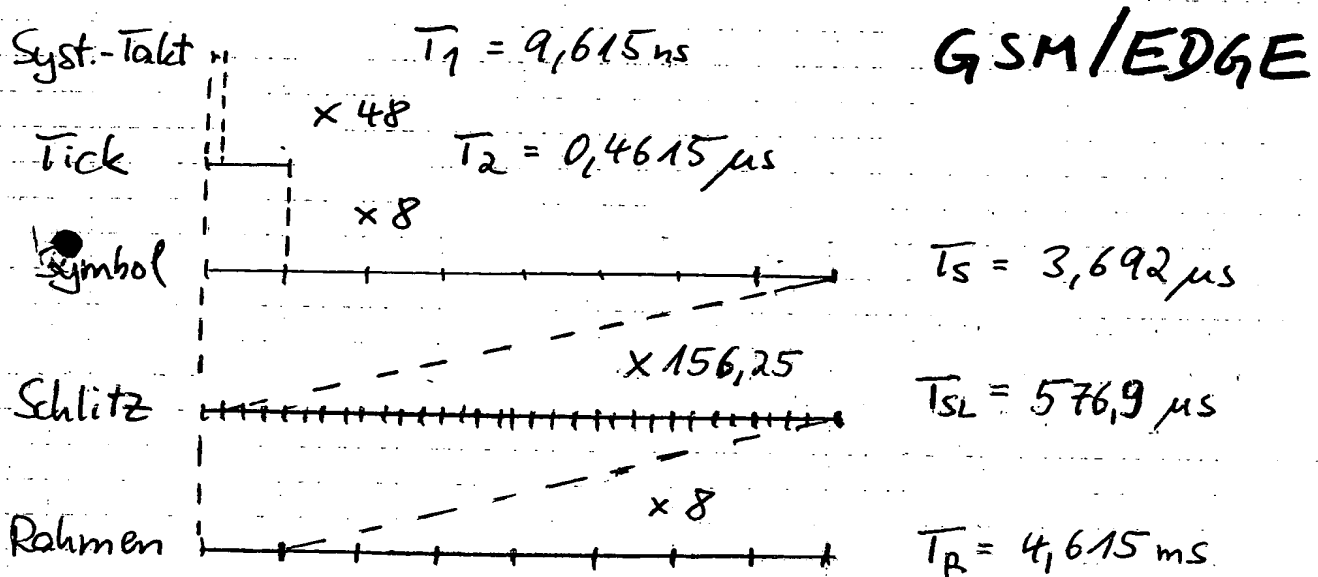 Syst.-Takt T1 = 9,615 ns GSM/EDGE
x 48
Tick T2 = 0,4615 µs
x 8
Symbol TS = 3,692 µs
x 156,25
Schlitz TSL = 576,9 µs
x 8
Rahmen TR = 4,615 ms